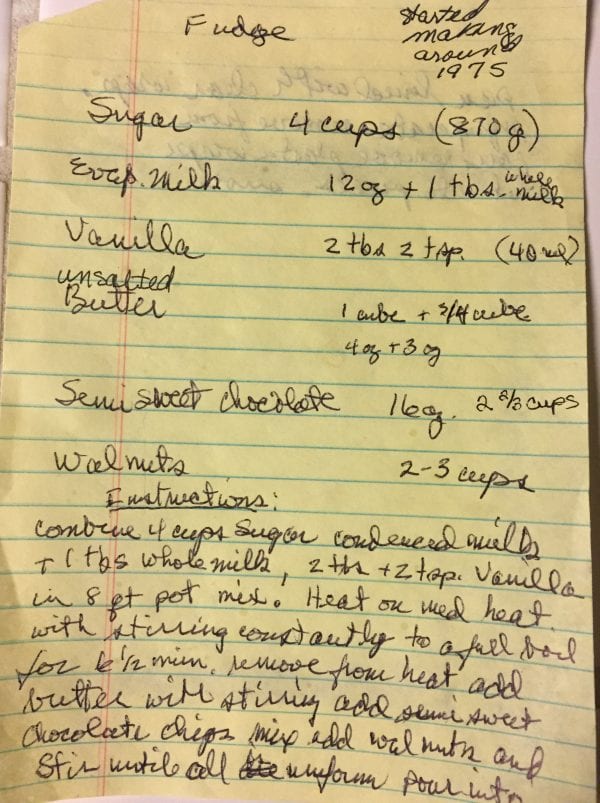 Fudge
Started
making
around
1975
Sugar 4 cups (870 g)
Evap. milk 12 oz + 1 tbs. whole milk
Vanilla 2 tbs 2 tsp. (40 ml)
unsalted
Butter 1 cube + 3/4 cube
4 oz + 3 oz
Semi sweet chocolate 16 oz. 2 2/3 cups
Walnuts 2-3 cups
Instructions:
combine 4 cups Sugar condensed milk
+ 1 tbs whole milk, 2 tbs + 2 tsp. Vanilla
in 8 qt pot mix. Heat on med heat
with stirring constantly to a full boil
for 6 1/2 min. remove from heat add
butter with stirring add semi sweet
chocolate chips mix add walnuts and
Stir until all uniform pour into